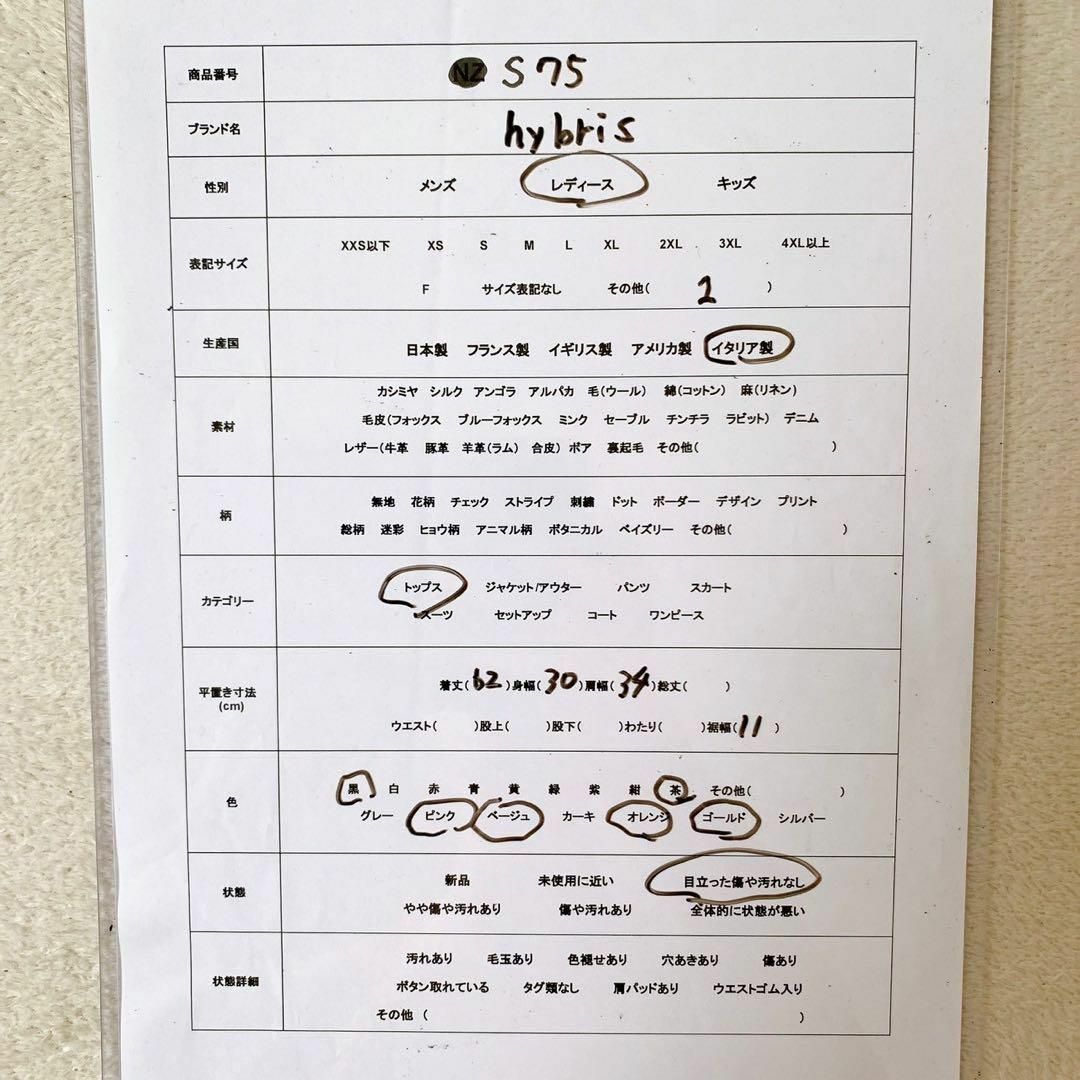 商品番号 NZ S75
ブランド名 hybris
性別 メンズ レディース キッズ
表記サイズ XXS以下 XS S M L XL 2XL 3XL 4XL以上
F サイズ表記なし その他( 2 )
生産国 日本製 フランス製 イギリス製 アメリカ製 イタリア製
素材 カシミヤ シルク アンゴラ アルパカ 毛(ウール) 綿(コットン) 麻(リネン)
毛皮(フォックス ブルーフォックス ミンク セーブル チンチラ ラビット) デニム
レザー(牛革 豚革 羊革(ラム) 合皮) ボア 裏起毛 その他( )
柄 無地 花柄 チェック ストライプ 刺繍 ドット ボーダー デザイン プリント
総柄 迷彩 ヒョウ柄 アニマル柄 ボタニカル ペイズリー その他( )
カテゴリー トップス ジャケット/アウター パンツ スカート
スーツ セットアップ コート ワンピース
平置き寸法(cm) 着丈( 62 )身幅( 30 )肩幅( 34 )総丈( )
ウエスト( )股上( )股下( )わたり( )裾幅( 11 )
色 黒 白 赤 青 黄 緑 紫 紺 茶 その他( )
グレー ピンク ベージュ カーキ オレンジ ゴールド シルバー
状態 新品 未使用に近い 目立った傷や汚れなし
やや傷や汚れあり 傷や汚れあり 全体的に状態が悪い
状態詳細 汚れあり 毛玉あり 色褪せあり 穴あきあり 傷あり
ボタン取れている タグ類なし 肩パッドあり ウエストゴム入り
その他 ( )